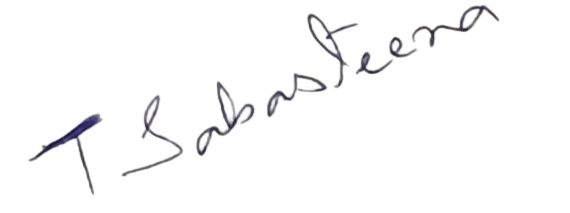 T Sabasteena